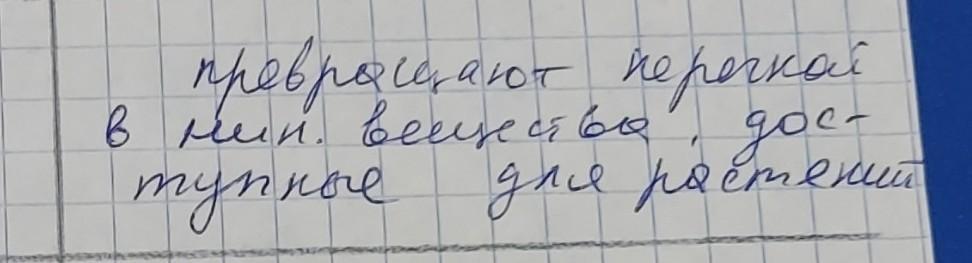 превращают перегной
в мин. вещества, дос-
тупные для растений